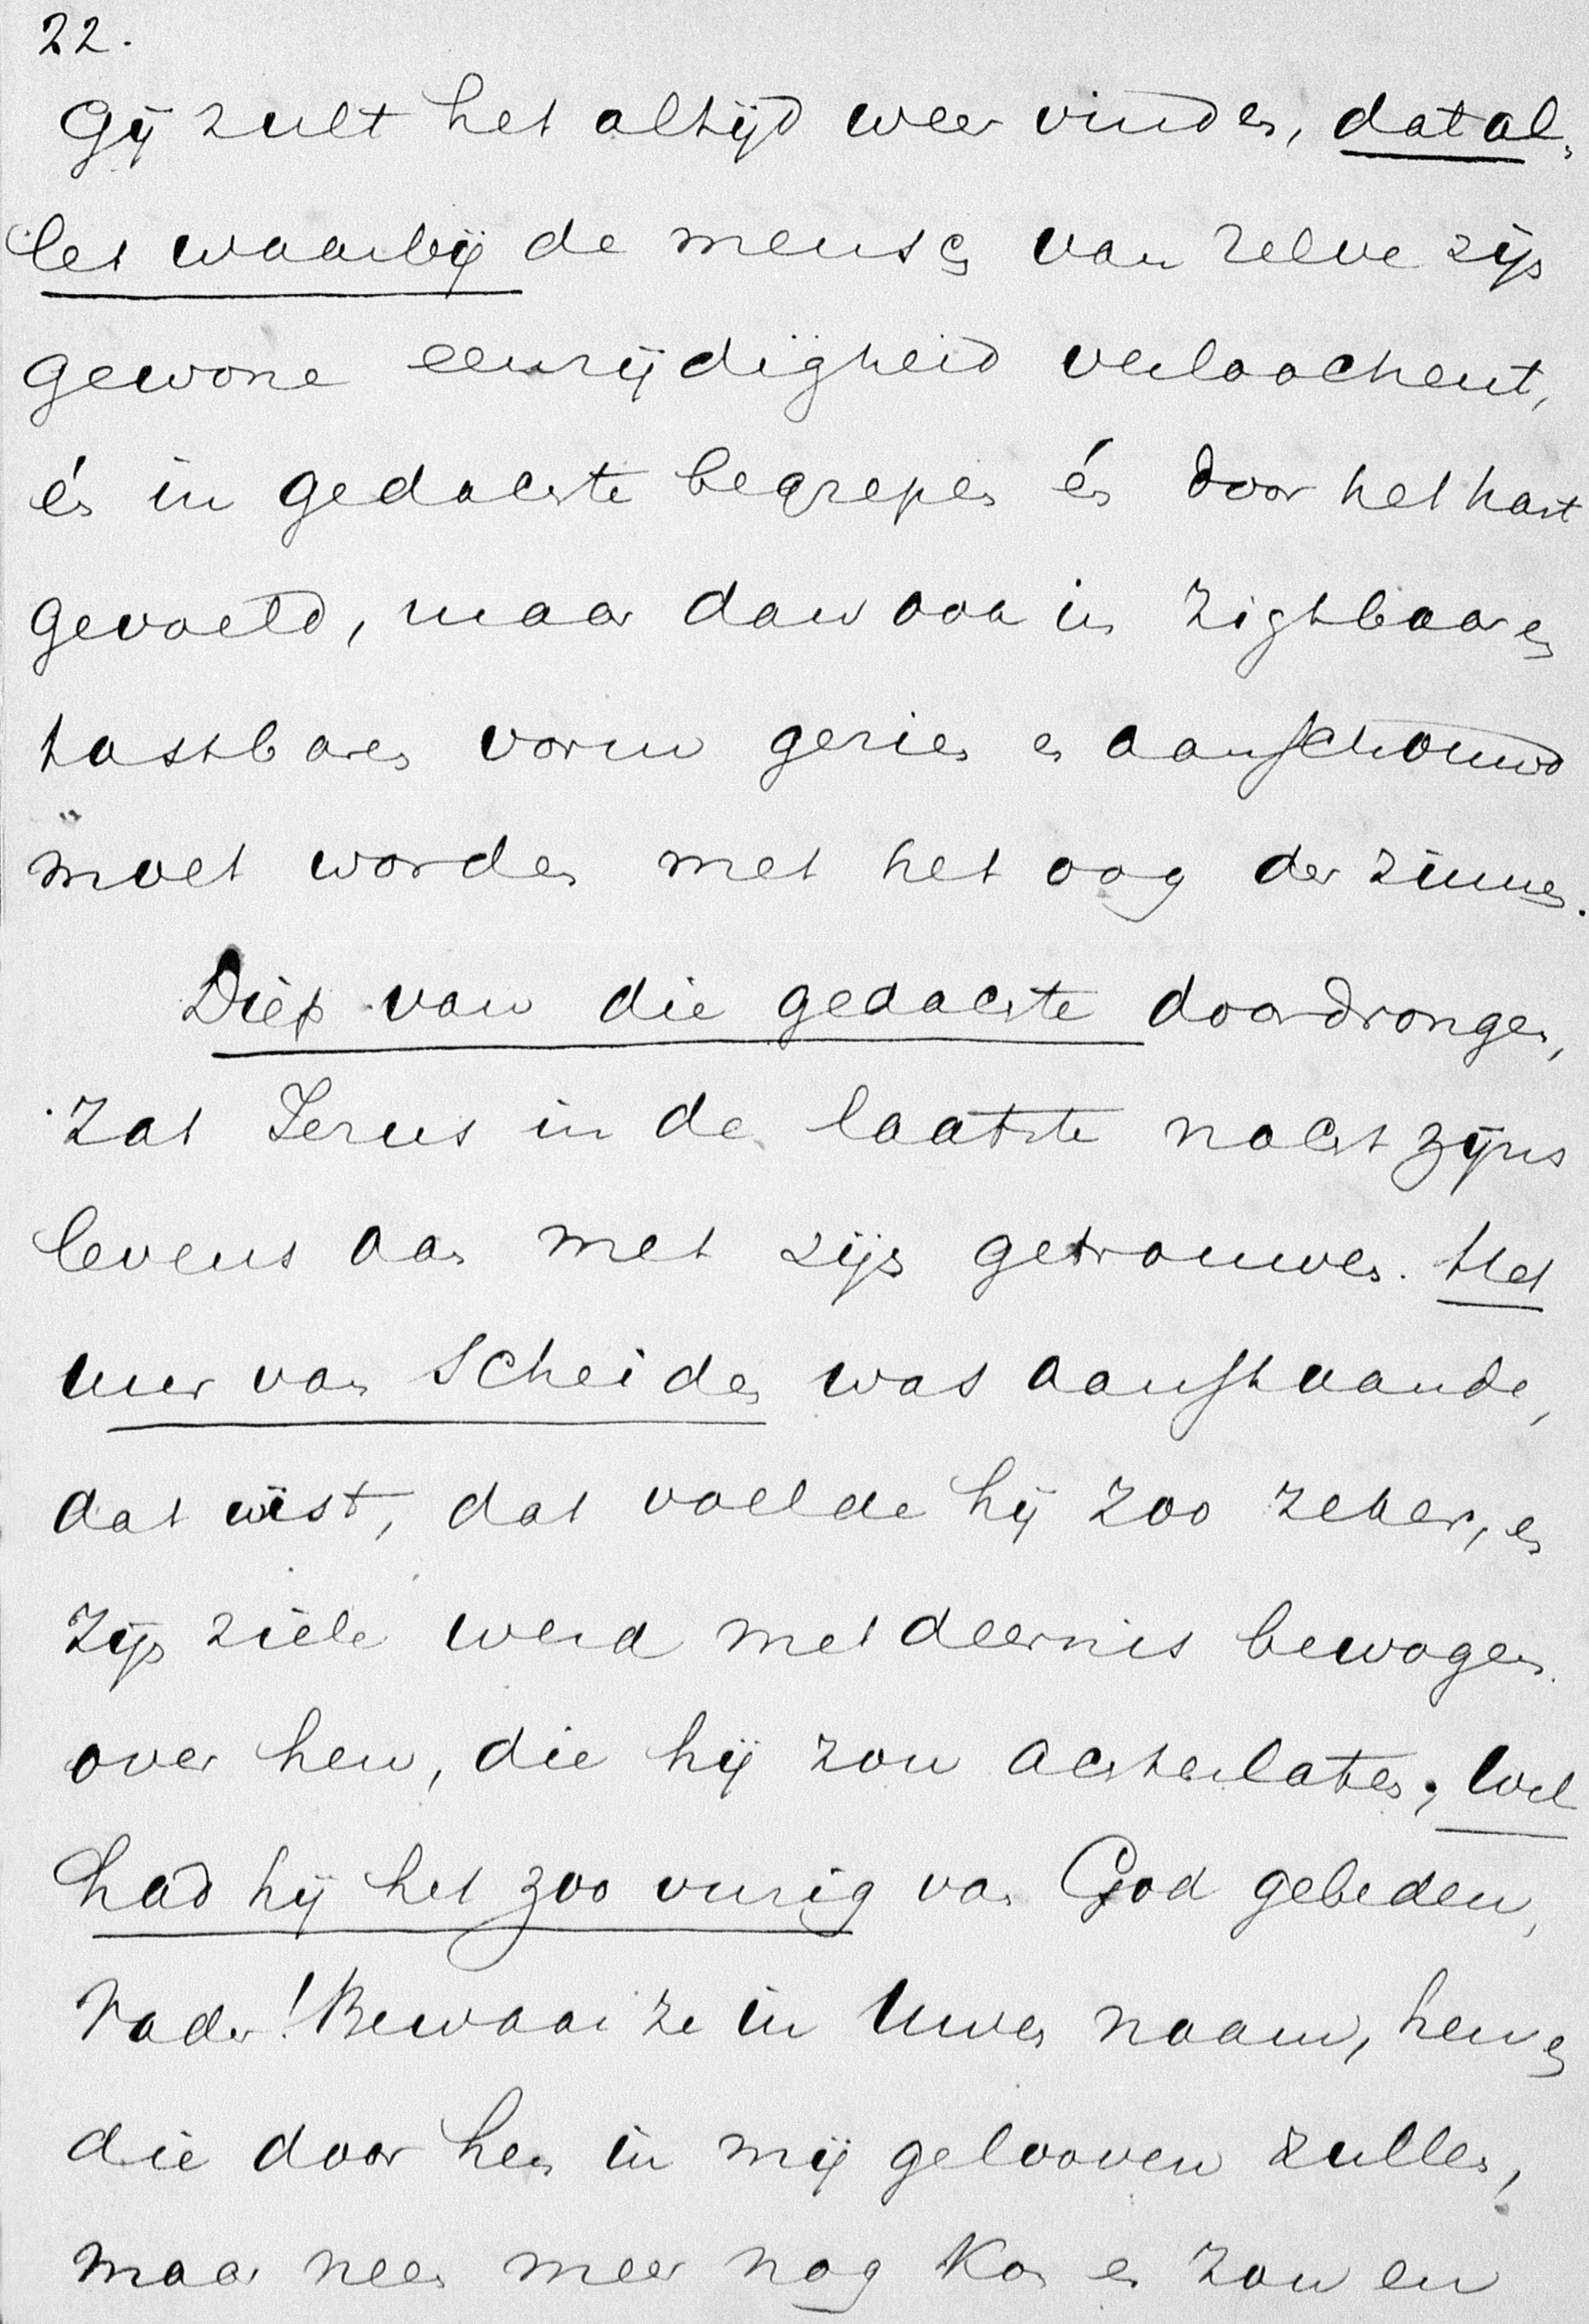 22.
Gij zult het altijd weer vinden, dat al,
les waarbij de mensch van zelve zijn
gewone eenzijdigheid verloochent,
én in gedachte begrepen én door het hart
gevoeld, maar dan ook in zigtbaaren
tastbaren vorm gezien en aanschouwd
moet worden met het oog der zinnen.
Diep van die gedachte doordrongen,
zat Jezus in de laatste nacht zijns
levens aan met zijn getrouwen. Het
uur van scheiden was aanstaande,
dat wist, dat voelde hij zoo zeker, en
zijn ziele werd met deernis bewogen
over hen, die hij zou achterlaten; Wel
had hij het zoo vurig van God gebeden,
Vader! Bewaar ze in Uwen naam, hen en
die door hen in mij gelooven zullen,
maar neen meer nog kon en zou en